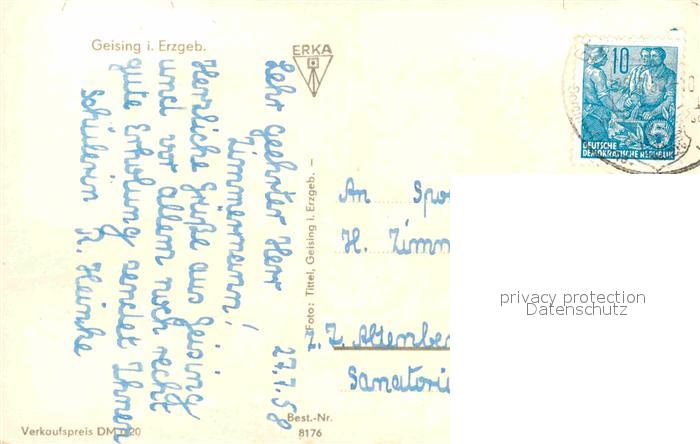 Geising i. Erzgeb.
ERKA
Sehr geehrter Herr
Zimmermann!
Herrliche Grüße aus Geising
und vor allem noch recht
gute Erholung sendet Ihnen
Schülerin R. Heinke
27.7.58
Foto: Tittel, Geising i. Erzgeb. –
10
DEUTSCHE
DEMOKRATISCHE REPUBLIK
5
An Spo
H. Zimm
z. Z. Altenbe
Sanatori
privacy protection
Datenschutz
Verkaufspreis DM 0,20
Best.-Nr.
8176